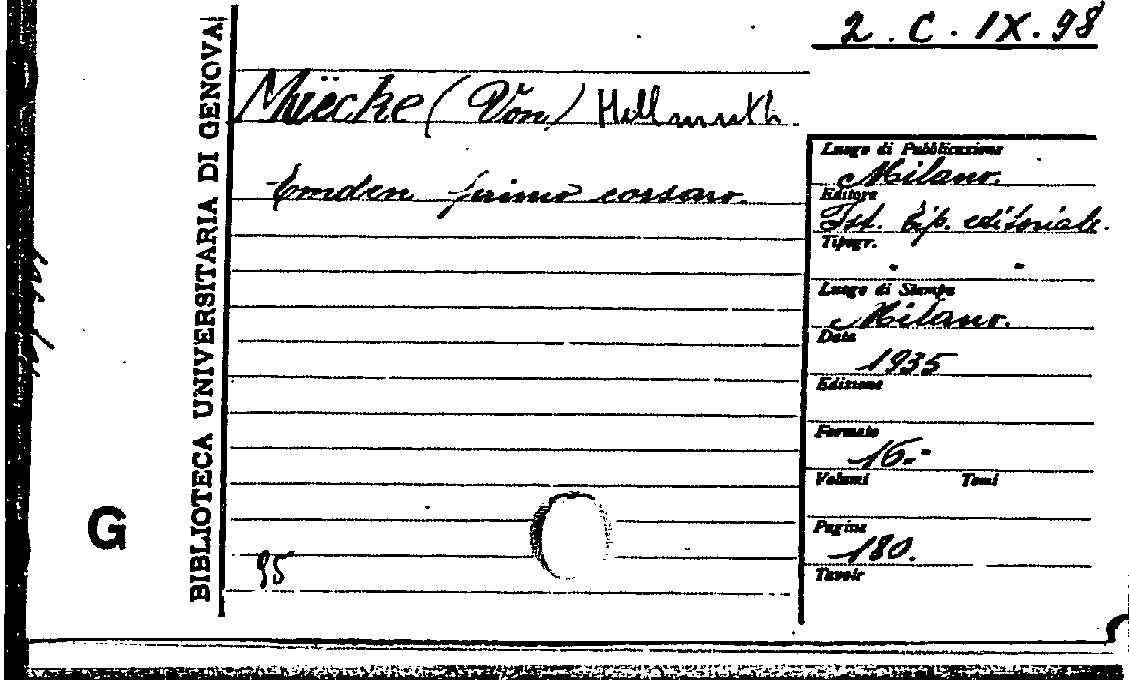 2. C. IX. 98
BIBLIOTECA UNIVERSITARIA DI GENOVA
Müecke (Von) Hellmuth.
Emden primo corsaro.
Luogo di Pubblicazione
Milano.
Editore
Ist. tip. editoriale.
Tipogr.
" "
Luogo di Stampa
Milano.
Data
1935
Edizione
Formato
16.-
Volumi Tomi
Pagine
180.
Tavole
G
95